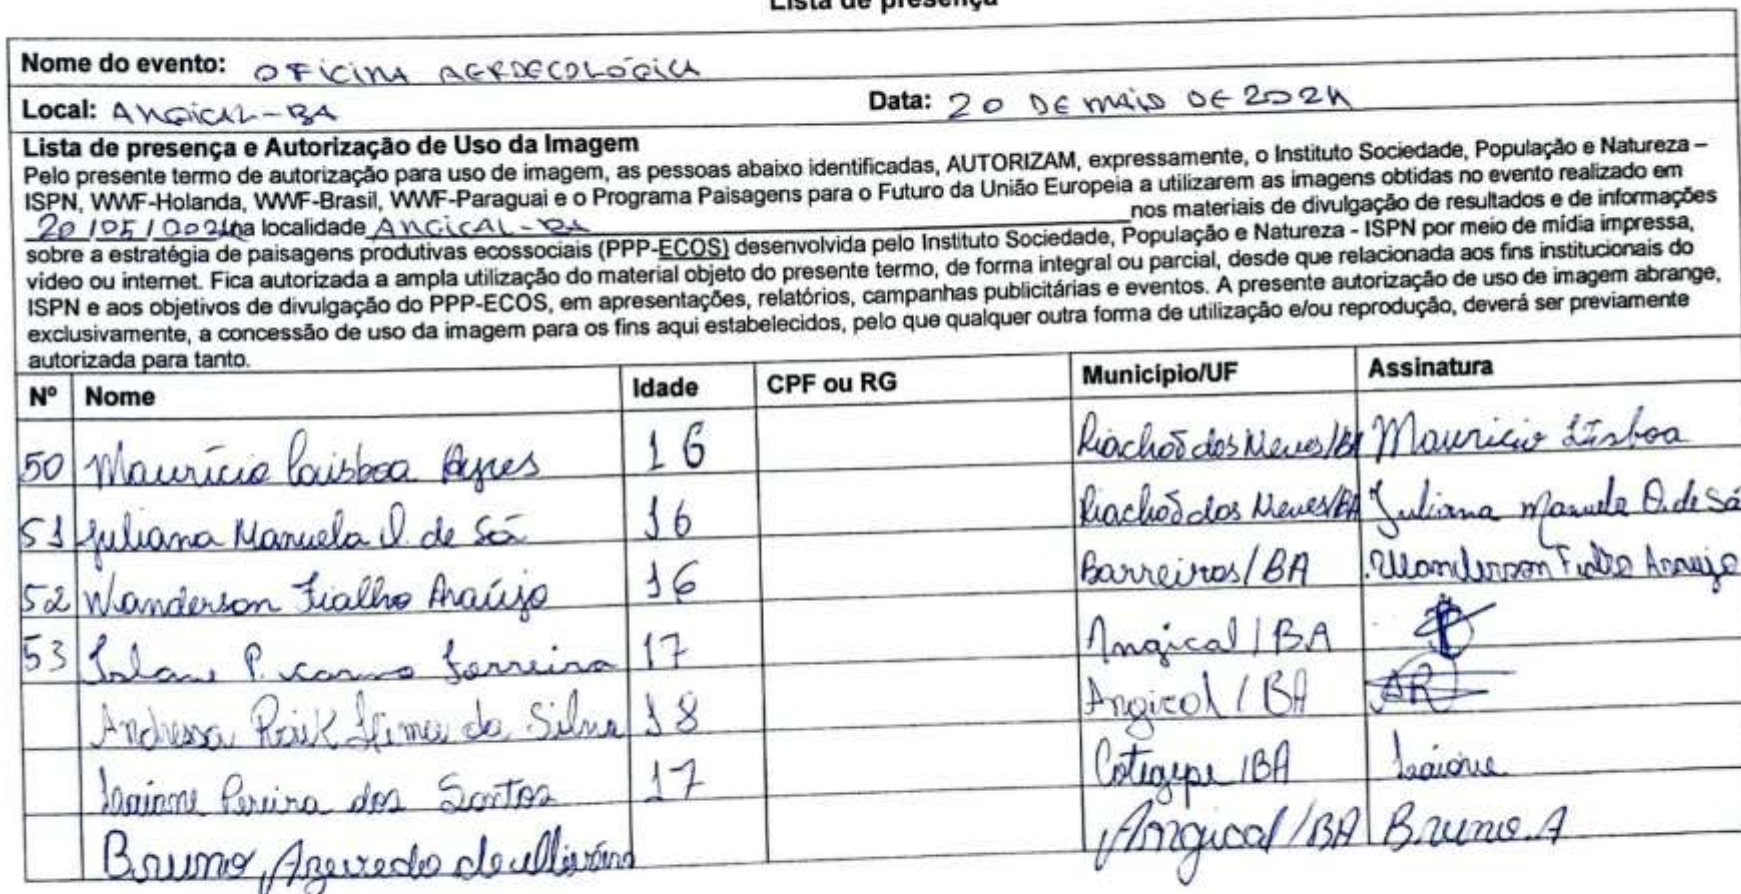 Lista de presença
Nome do evento: OFICINA AGROECOLÓGICA
Local: ANGICAL-BA Data: 20 DE MAIO DE 2024
Lista de presença e Autorização de Uso da Imagem
Pelo presente termo de autorização para uso de imagem, as pessoas abaixo identificadas, AUTORIZAM, expressamente, o Instituto Sociedade, População e Natureza –
ISPN, WWF-Holanda, WWF-Brasil, WWF-Paraguai e o Programa Paisagens para o Futuro da União Europeia a utilizarem as imagens obtidas no evento realizado em
20/05/2024 na localidade ANGICAL-BA nos materiais de divulgação de resultados e de informações
sobre a estratégia de paisagens produtivas ecossociais (PPP-ECOS) desenvolvida pelo Instituto Sociedade, População e Natureza - ISPN por meio de mídia impressa,
vídeo ou internet. Fica autorizada a ampla utilização do material objeto do presente termo, de forma integral ou parcial, desde que relacionada aos fins institucionais do
ISPN e aos objetivos de divulgação do PPP-ECOS, em apresentações, relatórios, campanhas publicitárias e eventos. A presente autorização de uso de imagem abrange,
exclusivamente, a concessão de uso da imagem para os fins aqui estabelecidos, pelo que qualquer outra forma de utilização e/ou reprodução, deverá ser previamente
autorizada para tanto.
Nº Nome Idade CPF ou RG Município/UF Assinatura
50 Maurício Ayres 16 Riachõ dos Neves/BA Mauricio Lisboa
51 Juliana Manuela O. de Sá 16 Riachõ dos Neves/BA Juliana Manuela O. de Sá
52 Wanderson Fialho Araújo 16 Barreiras/BA Wanderson Fialho Araujo
53 P. Ferreira 17 Angical/BA
Andressa da Silva 18 Angical/BA AR
Pereira dos Santos 17 Cotegipe/BA
Bruno Azevedo de Angical/BA Bruno.A